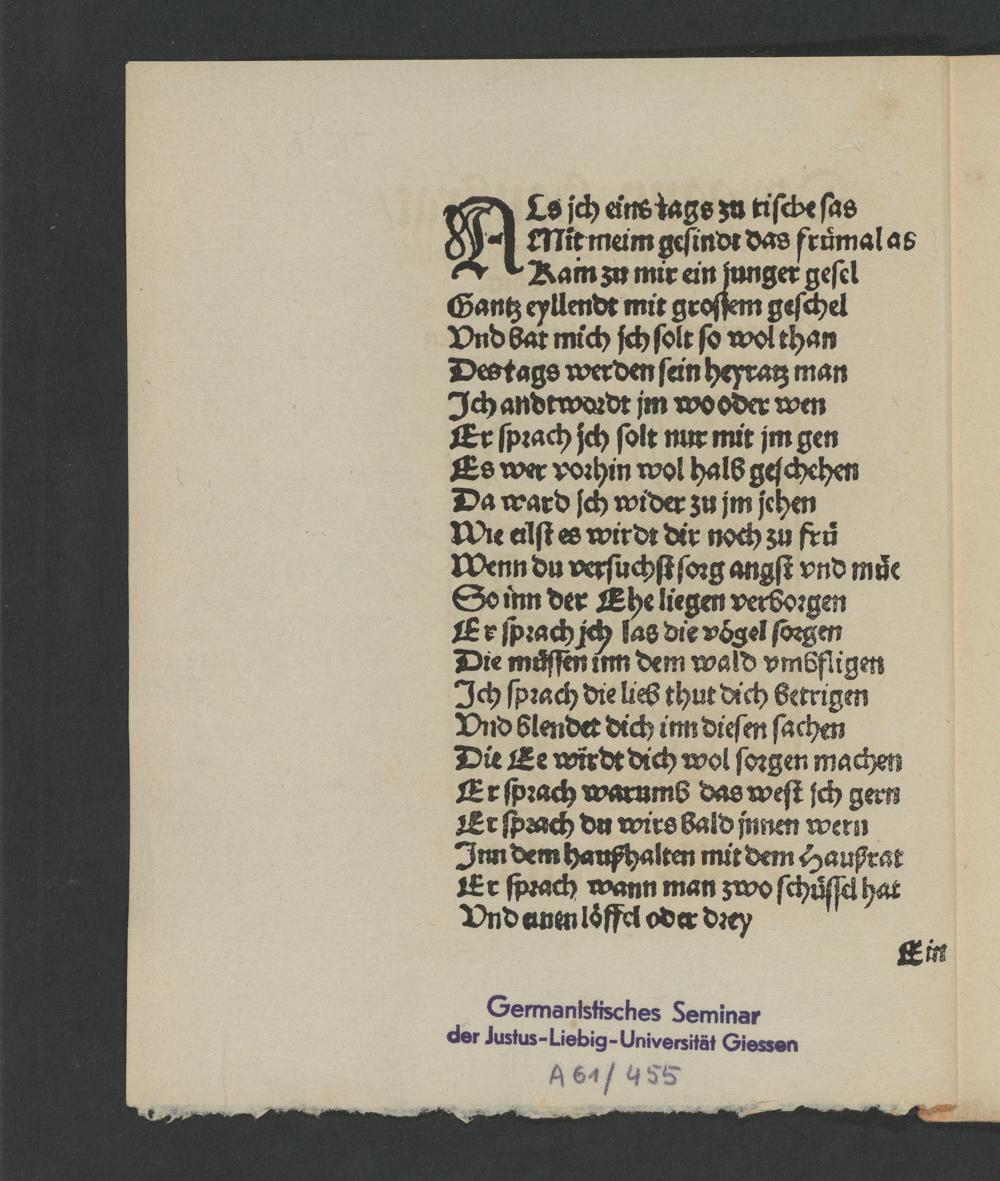 ALs jch eins tags zu tische sas
Mit meim gesindt das frümal as
Kam zu mir ein junger gesel
Gantz eyllendt mit grossem geschel
Vnd bat mich jch solt so wol than
Des tags werden sein heyratz man
Ich andtwordt jm wo oder wen
Er sprach jch solt nur mit jm gen
Es wer vorhin wol halb geschehen
Da ward jch wider zu jm jehen
Wie eilst es wirdt dir noch zu frü
Wenn du versuchst sorg angst vnd müe
So inn der Ehe liegen verborgen
Er sprach jch las die vögel sorgen
Die müssen inn dem wald vmbfligen
Ich sprach die lieb thut dich betrigen
Vnd blendet dich inn diesen sachen
Die Ee wirdt dich wol sorgen machen
Er sprach warumb das west jch gern
Er sprach du wirs bald jnnen wern
Inn dem haußhalten mit dem Haußrat
Er sprach wann man zwo schüssel hat
Vnd einen löffel oder drey
Ein
Germanistisches Seminar
der Justus-Liebig-Universität Giessen
A 61/455